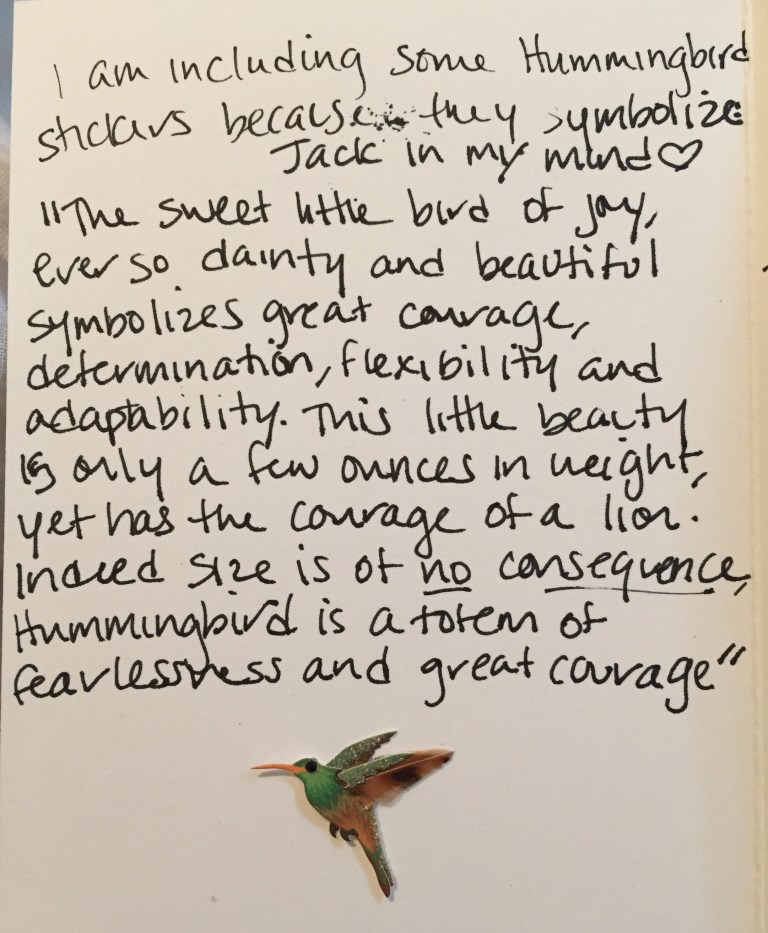 I am including some Hummingbird
stickers because they symbolize
Jack in my mind♡
"The sweet little bird of joy,
ever so dainty and beautiful
symbolizes great courage,
determination, flexibility and
adaptability. This little beauty
is only a few ounces in weight,
yet has the courage of a lion.
Indeed size is of no consequence,
Hummingbird is a totem of
fearlessness and great courage"